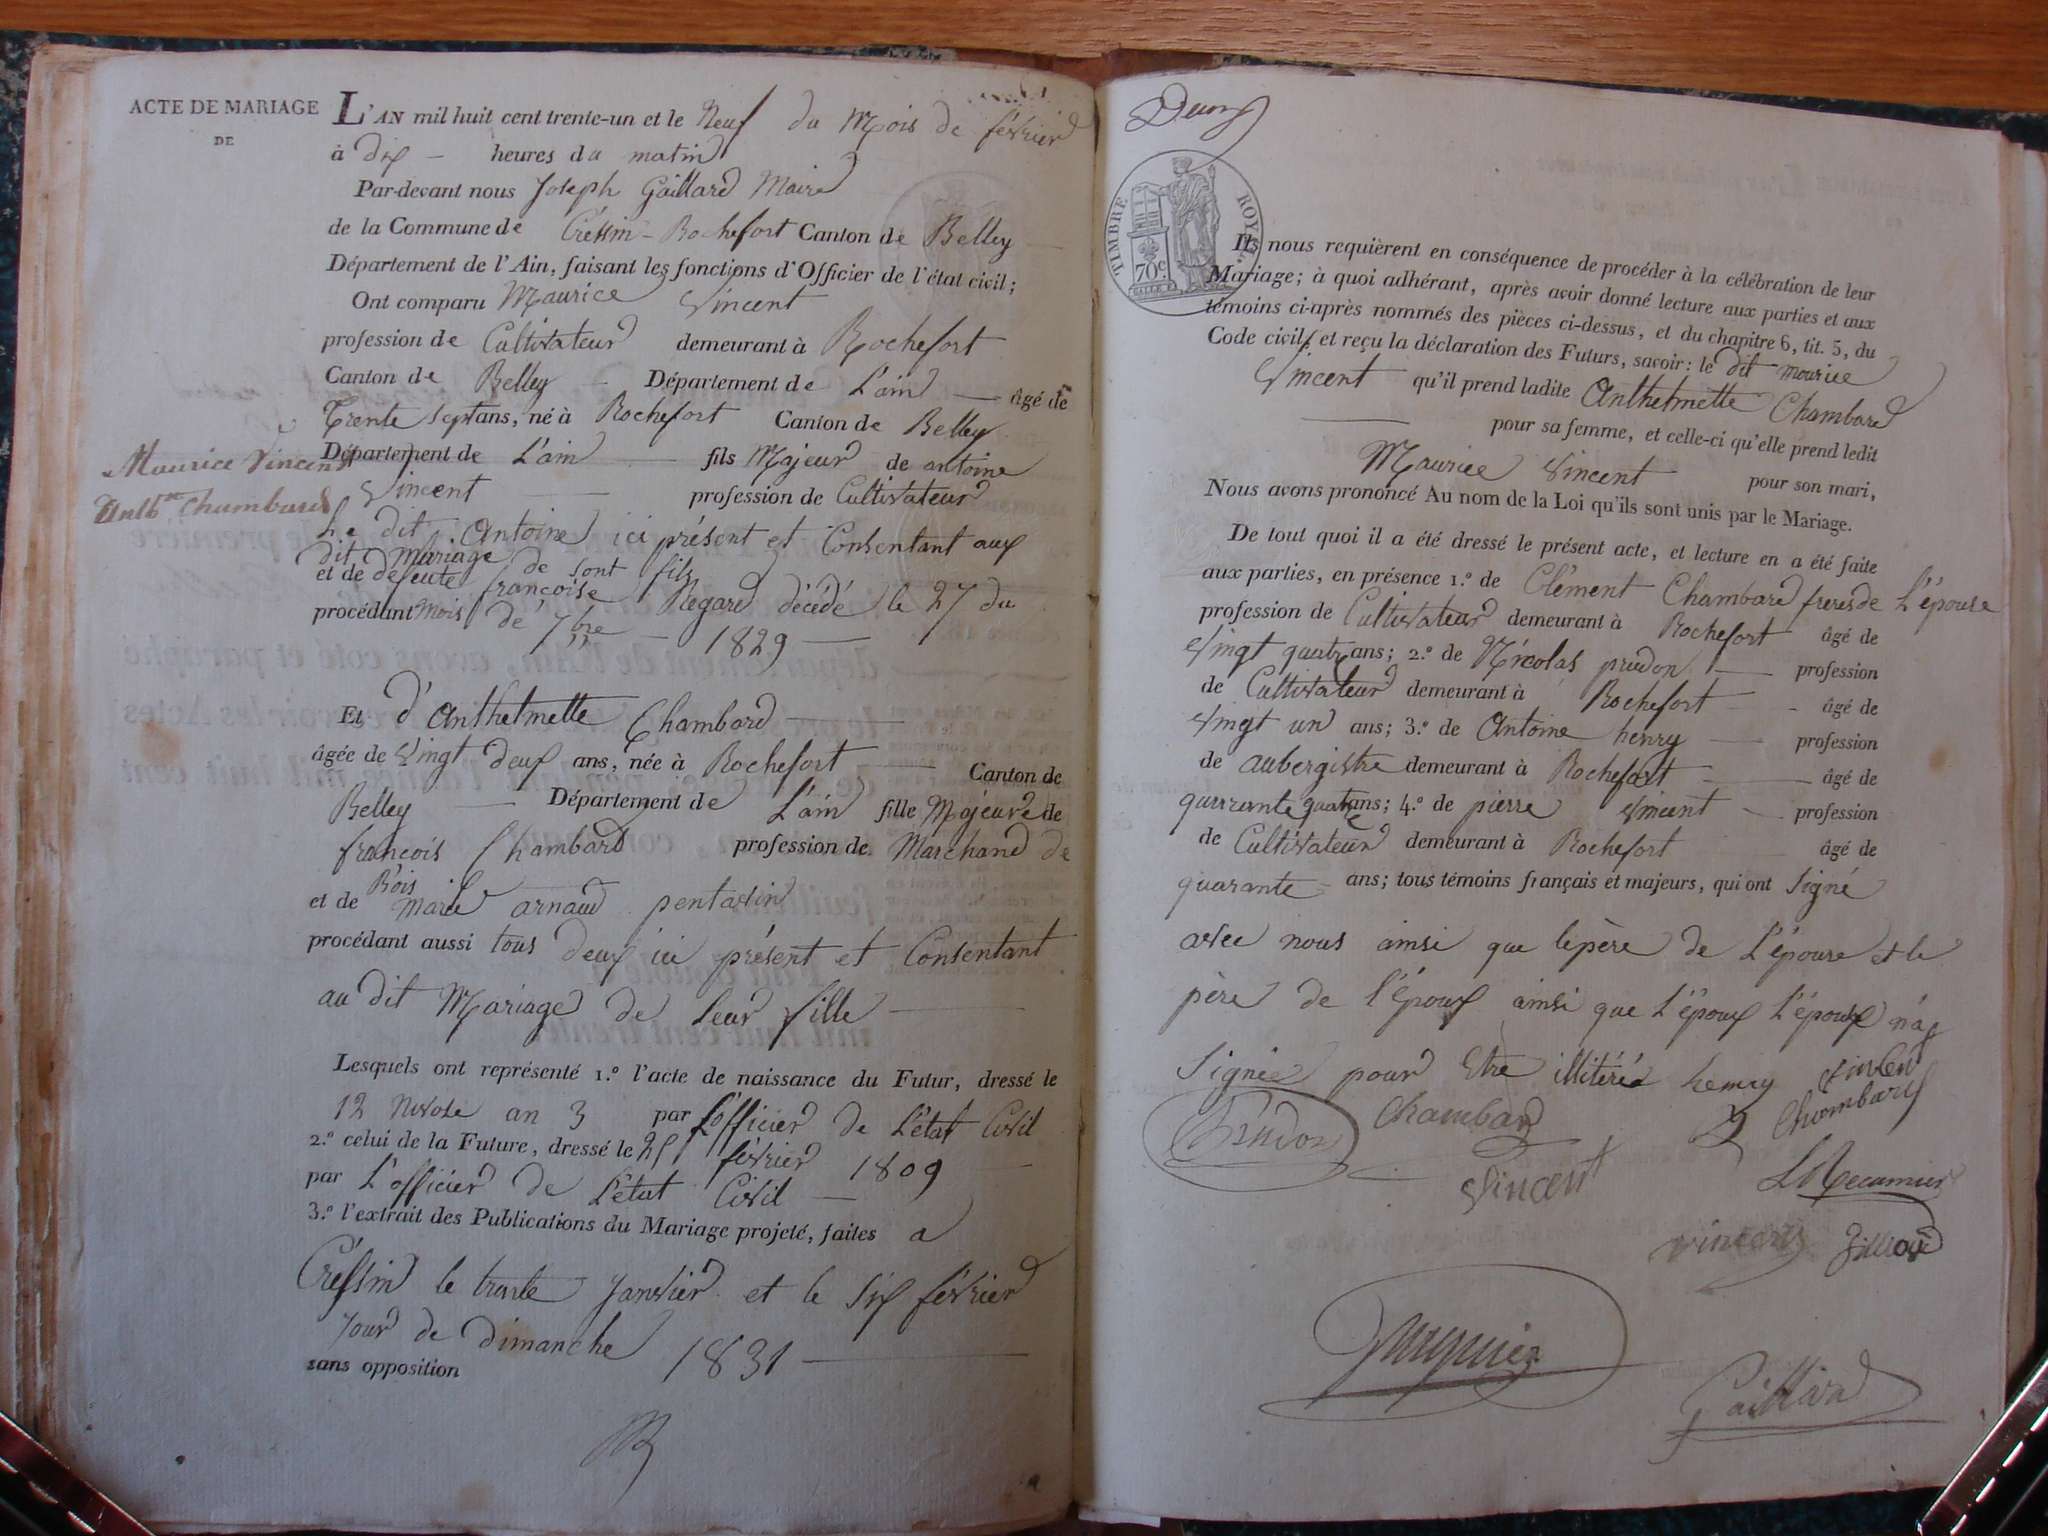 ACTE DE MARIAGE
DE
Maurice Vincent
Anth.me Chambard
L'AN mil huit cent trente-un et le Neuf du Mois de février
à dix heures du matin
Par-devant nous Joseph Gaillard Maire
de la Commune de Cressin-Rochefort Canton de Belley
Département de l'Ain, faisant les fonctions d'Officier de l'état civil;
Ont comparu Maurice Vincent
profession de Cultivateur demeurant à Rochefort
Canton de Belley Département de L'ain âgé de
Trente sept ans, né à Rochefort Canton de Belley
Département de L'ain fils Majeur de antoine
Vincent profession de Cultivateur
Le dit Antoine ici présent et Consentant aux
dit Mariage de sont fils
et de défeute francoise Regard décédé le 27 du
procédant mois de 7bre 1829
Et d'Anthelmette Chambard
âgée de Vingt deux ans, née à Rochefort Canton de
Belley Département de L'ain fille Majeure de
francois Chambard profession de Marchand de
Bois
et de Marie arnaud pentavin
procédant aussi tous deux ici présent et Consentant
au dit Mariage de Leur fille
Lesquels ont représenté 1.º l'acte de naissance du Futur, dressé le
12 Nivose an 3 par L'officier de L'état Civil
2.º celui de la Future, dressé le 25 février 1809
par L'officier de L'état Civil
3.º l'extrait des Publications du Mariage projeté, faites a
Cressin le trente Janvier et le Six février
Jour de dimanche 1831
sans opposition
TIMBRE ROYAL
70c.
Ils nous requièrent en conséquence de procéder à la célébration de leur
Mariage; à quoi adhérant, après avoir donné lecture aux parties et aux
témoins ci-après nommés des pièces ci-dessus, et du chapitre 6, tit. 5, du
Code civil, et reçu la déclaration des Futurs, savoir: le dit mourice
Vincent qu'il prend ladite Anthelmette Chambard
pour sa femme, et celle-ci qu'elle prend ledit
Maurice Vincent pour son mari,
Nous avons prononcé Au nom de la Loi qu'ils sont unis par le Mariage.
De tout quoi il a été dressé le présent acte, et lecture en a été faite
aux parties, en présence 1.º de Clément Chambard freres de L'épouse
profession de Cultivateur demeurant à Rochefort âgé de
Vingt quatre ans; 2.º de Nicolas prudon profession
de Cultivateur demeurant à Rochefort âgé de
Vingt un ans; 3.º de Antoine henry profession
de aubergistre demeurant à Rochefort âgé de
quarrante quatre ans; 4.º de pierre Vincent profession
de Cultivateur demeurant à Rochefort âgé de
quarante ans; tous témoins français et majeurs, qui ont Signé
avec nous ainsi que le père de L'épouse et le
père de l'époux ainsi que L'époux L'épouse n'a
Signée pour Etre illitérée henry Vincent
Prudon Chambard Chambard
Vincent L Recamier
Vincent
Gaillard